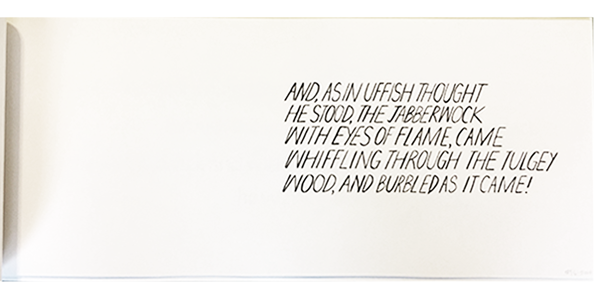 AND, AS IN UFFISH THOUGHT
HE STOOD, THE JABBERWOCK
WITH EYES OF FLAME, CAME
WHIFFLING THROUGH THE TULGEY
WOOD, AND BURBLED AS IT CAME!